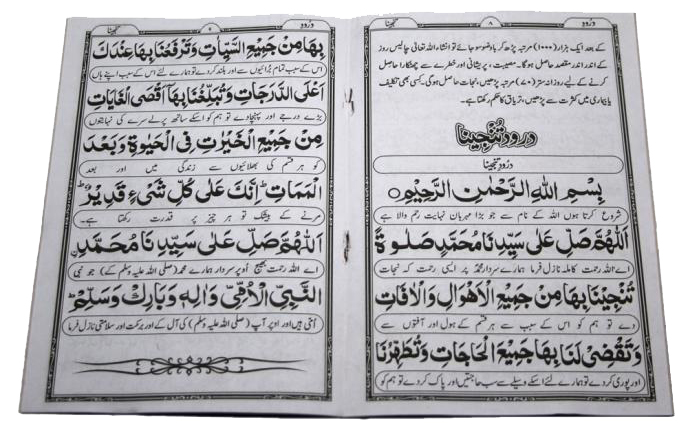 درود
۸
گنجینا
کے بعد ایک ہزار (۱۰۰۰) مرتبہ پڑھ کر باوضو سو جائے تو انشاء اللہ تعالیٰ چالیس روز
کے اندر اندر مقصد حاصل ہوگا۔ مصیبت، پریشانی اور خطرے سے چھٹکارا حاصل
کرنے کے لیے روزانہ ستر (۷۰) مرتبہ پڑھیں، نجات حاصل ہوگی۔ کسی بھی تکلیف
یا بیماری میں کثرت سے پڑھیں، تریاق کا حکم رکھتا ہے۔
درود تنجینا
درود تنجینا
بِسْمِ اللهِ الرَّحْمٰنِ الرَّحِيْمِ
شروع کرتا ہوں اللہ کے نام سے جو بڑا مہربان نہایت رحم والا ہے
اَللّٰهُمَّ صَلِّ عَلٰى سَيِّدِنَا مُحَمَّدٍ صَلٰوةً
اے اللہ رحمت کاملہ نازل فرما ہمارے سردار محمدؐ پر ایسی رحمت کہ نجات
تُنْجِيْنَا بِهَا مِنْ جَمِيْعِ الْاَهْوَالِ وَالْاٰفَاتِ
دے تو ہم کو اس کے سبب سے ہر قسم کے ہول اور آفتوں سے
وَتَقْضِىْ لَنَا بِهَا جَمِيْعَ الْحَاجَاتِ وَتُطَهِّرُنَا
اور پوری کر دے تو ہمارے لئے اسکے وسیلے سے سب حاجتیں اور پاک کر دے تو ہم کو
درود
۹
بِهَا مِنْ جَمِيْعِ السَّيِّاٰتِ وَتَرْفَعُنَا بِهَا عِنْدَكَ
اس کے سبب تمام برائیوں سے اور بلند کر دے تو ہمارے لئے اس کے سبب اپنے ہاں
اَعْلَى الدَّرَجَاتِ وَتُبَلِّغُنَا بِهَا اَقْصَى الْغَايَاتِ
بڑے درجے اور پہنچاوے تو ہم کو اسکے ساتھ پرلے سرے کی نہایتوں
مِنْ جَمِيْعِ الْخَيْرَاتِ فِى الْحَيٰوةِ وَبَعْدَ
کو ہر قسم کی بھلائیوں سے زندگی میں اور بعد
الْمَمَاتِ ؕ اِنَّكَ عَلٰى كُلِّ شَىْءٍ قَدِيْرٌ ؕ
مرنے کے بیشک تو ہر چیز پر قدرت رکھتا ہے۔
اَللّٰهُمَّ صَلِّ عَلٰى سَيِّدِنَا مُحَمَّدِ
اے اللہ رحمت بھیج اوپر سردار ہمارے محمد (صلی اللہ علیہ وسلم کے) جو نبی
النَّبِىِّ الْاُمِّىِّ وَاٰلِهٖ وَبَارِكْ وَسَلِّمْ ؕ
امی ہیں اور اوپر آپ (صلی اللہ علیہ وسلم) کی آل کے اور برکت اور سلامتی نازل فرما